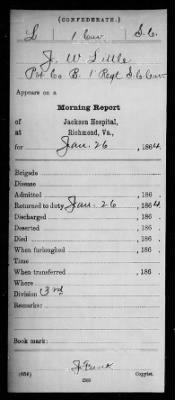 (CONFEDERATE.)
L 1 Cav S.C.
J. W. Little
Pvt Co. B. 1' Regt S.C. Cav
Appears on a
Morning Report
of Jackson Hospital,
at Richmond, Va.,
for Jan. 26, 1864
Brigade
Disease
Admitted , 186 .
Returned to duty Jan. 26 , 1864
Discharged , 186 .
Deserted , 186 .
Died , 186 .
When furloughed , 186 .
Time
When transferred , 186 .
Where
Division 3rd
Remarks:
Book mark:
Copyist.